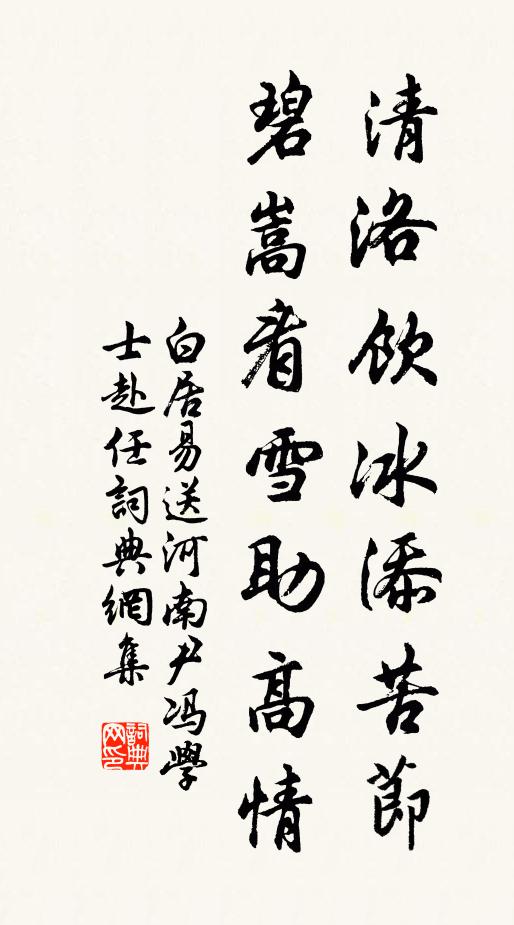 清洛飲冰添苦節
碧嵩看雪助高情
白居易送河南尹冯學
士赴任詞典網集
詞典
网印